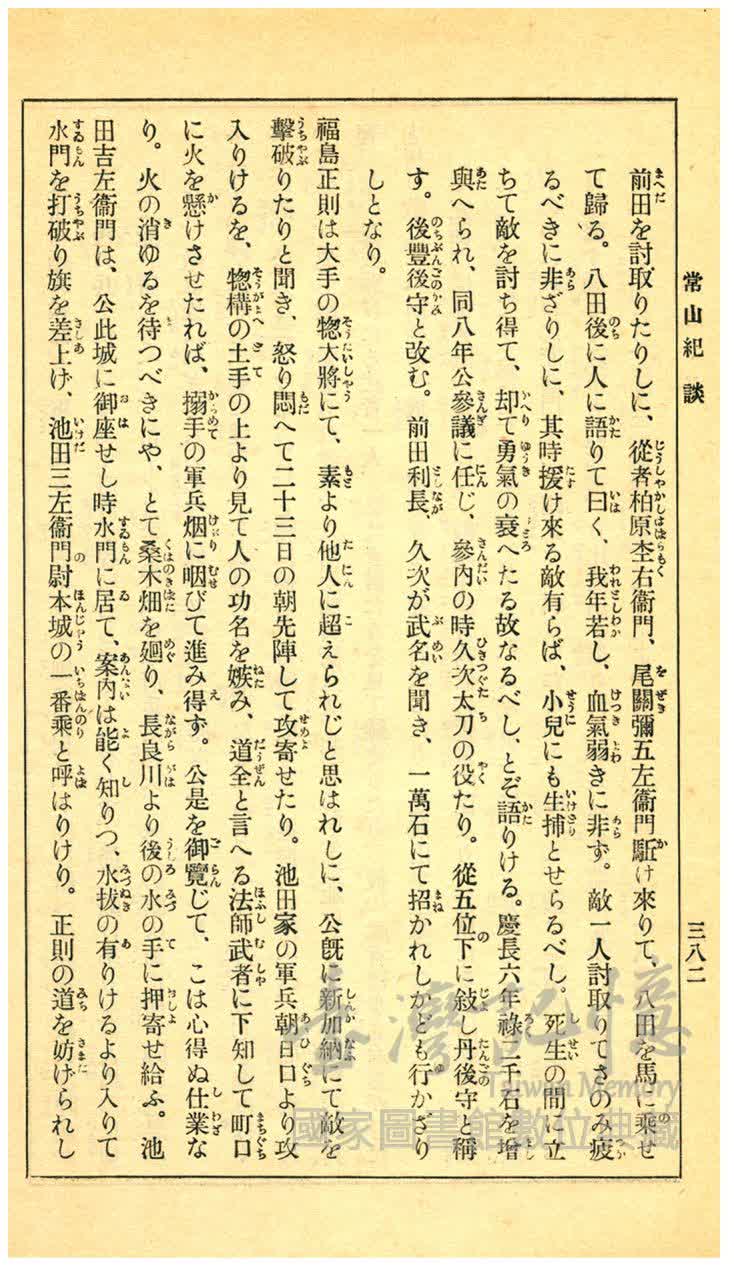 常山紀談
三八二
前田を討取りたりしに、從者柏原杢右衞門、尾關彌五左衞門駈け來りて、八田を馬に乘せ
て歸る。八田後に人に語りて曰く、我年若し、血氣弱きに非ず。敵一人討取りてさのみ疲
るべきに非ざりしに、其時援け來る敵有らば、小兒にも生捕とせらるべし。死生の間に立
ちて敵を討ち得て、却て勇氣の衰へたる故なるべし、とぞ語りける。慶長六年祿二千石を增
與へられ、同八年公參議に任じ、參內の時久次太刀の役たり。從五位下に敍し丹後守と稱
す。後豐後守と改む。前田利長、久次が武名を聞き、一萬石にて招かれしかども行かざり
しとなり。
福島正則は大手の惣大將にて、素より他人に超えられじと思はれしに、公旣に新加納にて敵を
擊破りたりと聞き、怒り悶へて二十三日の朝先陣して攻寄せたり。池田家の軍兵朝日口より攻
入りけるを、惣構の土手の上より見て人の功名を嫉み、道全と言へる法師武者に下知して町口
に火を懸けさせたれば、搦手の軍兵烟に咽びて進み得ず。公是を御覽じて、こは心得ぬ仕業な
り。火の消ゆるを待つべきにや、とて桑木畑を廻り、長良川より後の水の手に押寄せ給ふ。池
田吉左衞門は、公此城に御座せし時水門に居て、案內は能く知りつ、水拔の有りけるより入りて
水門を打破り旗を差上げ、池田三左衞門尉本城の一番乘と呼はりけり。正則の道を妨げられし
臺灣記憶
Taiwan Memory
國家圖書館數位典藏